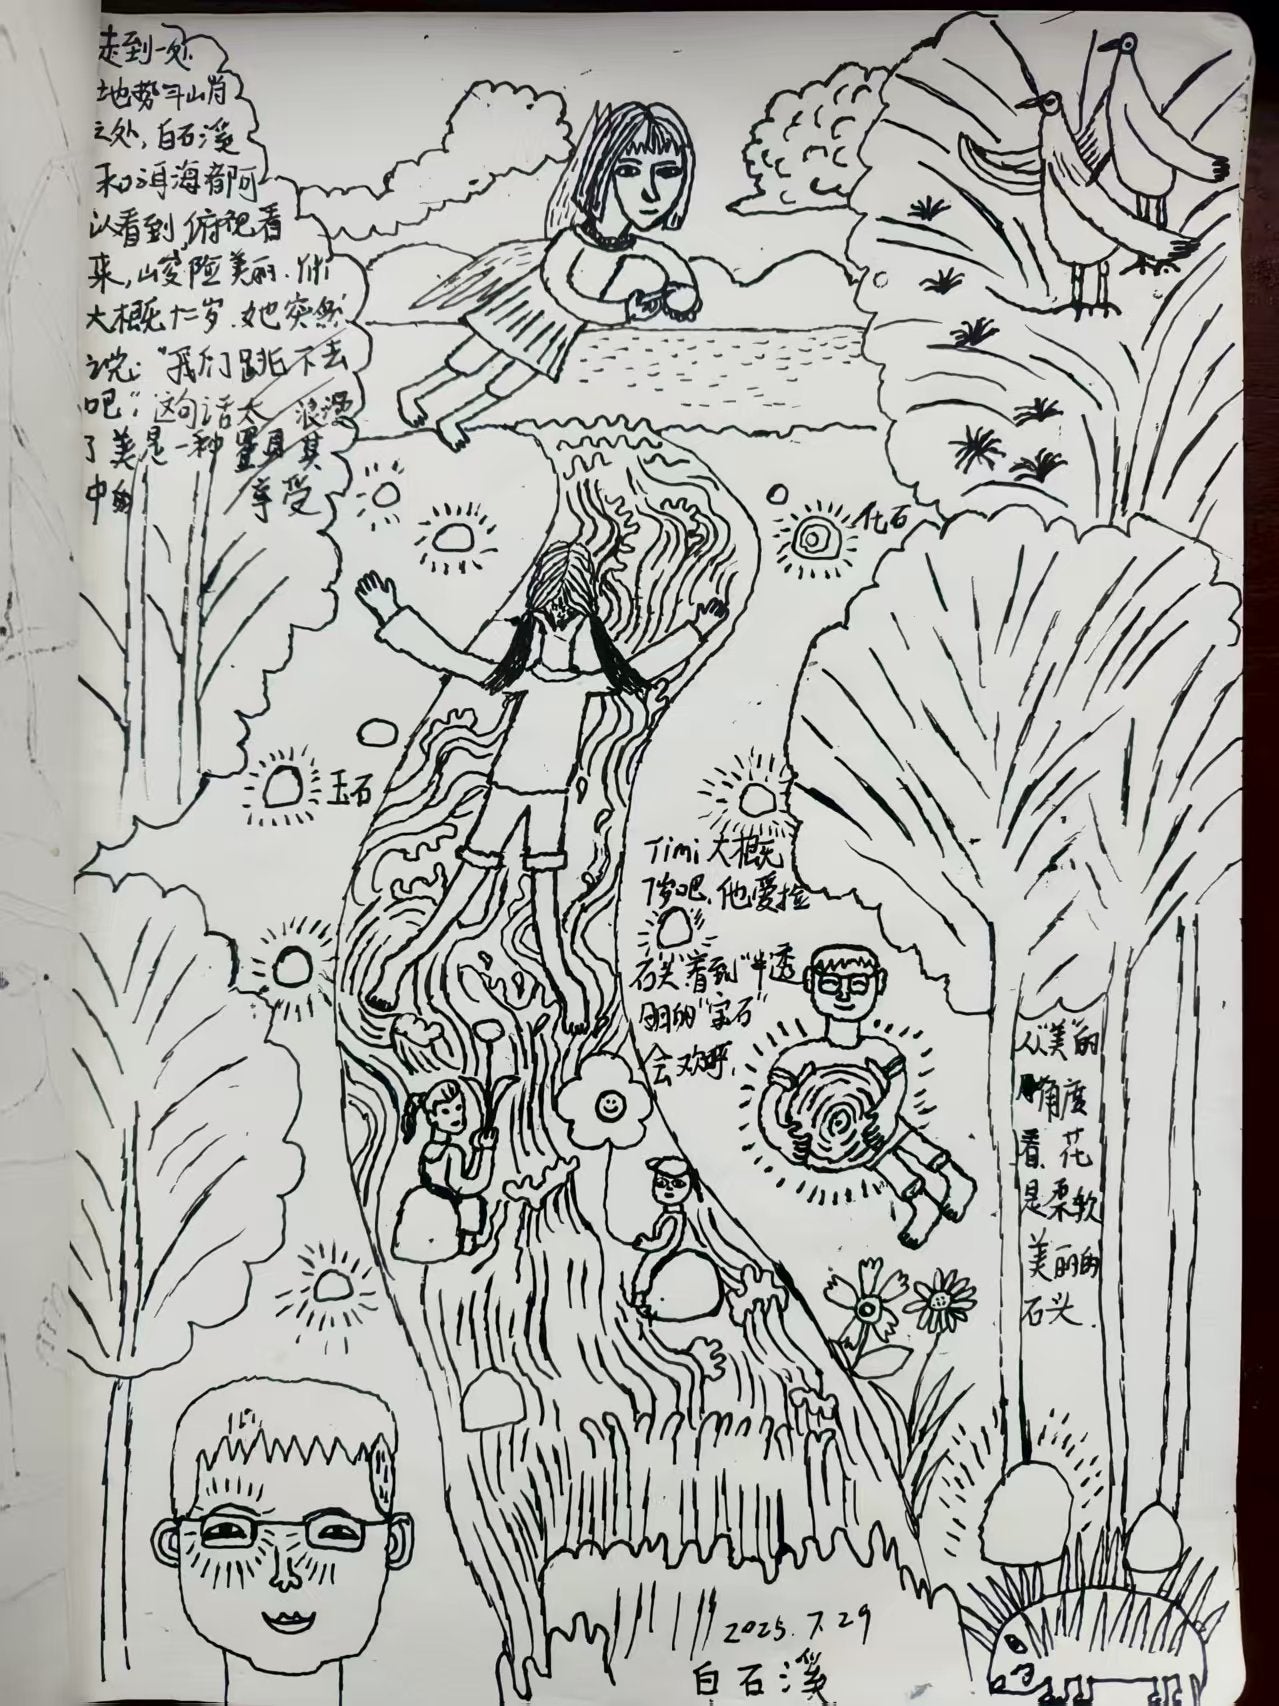 走到一处
地势斗峭
之处，白石溪
和洱海都可
以看到，俯视看
来，峻险美丽．竹竹
大概十二岁．她突然
说：“我们跳下去
吧”，这句话太浪漫
了美是一种置身其
中的享受
化石
玉石
Timi大概
7岁吧，他爱捡
石头，看到“半透
明的“宝石”
会欢呼．
从“美”的
角度
看，花
是柔软
美丽的
石头．
2025.7.29
白石溪